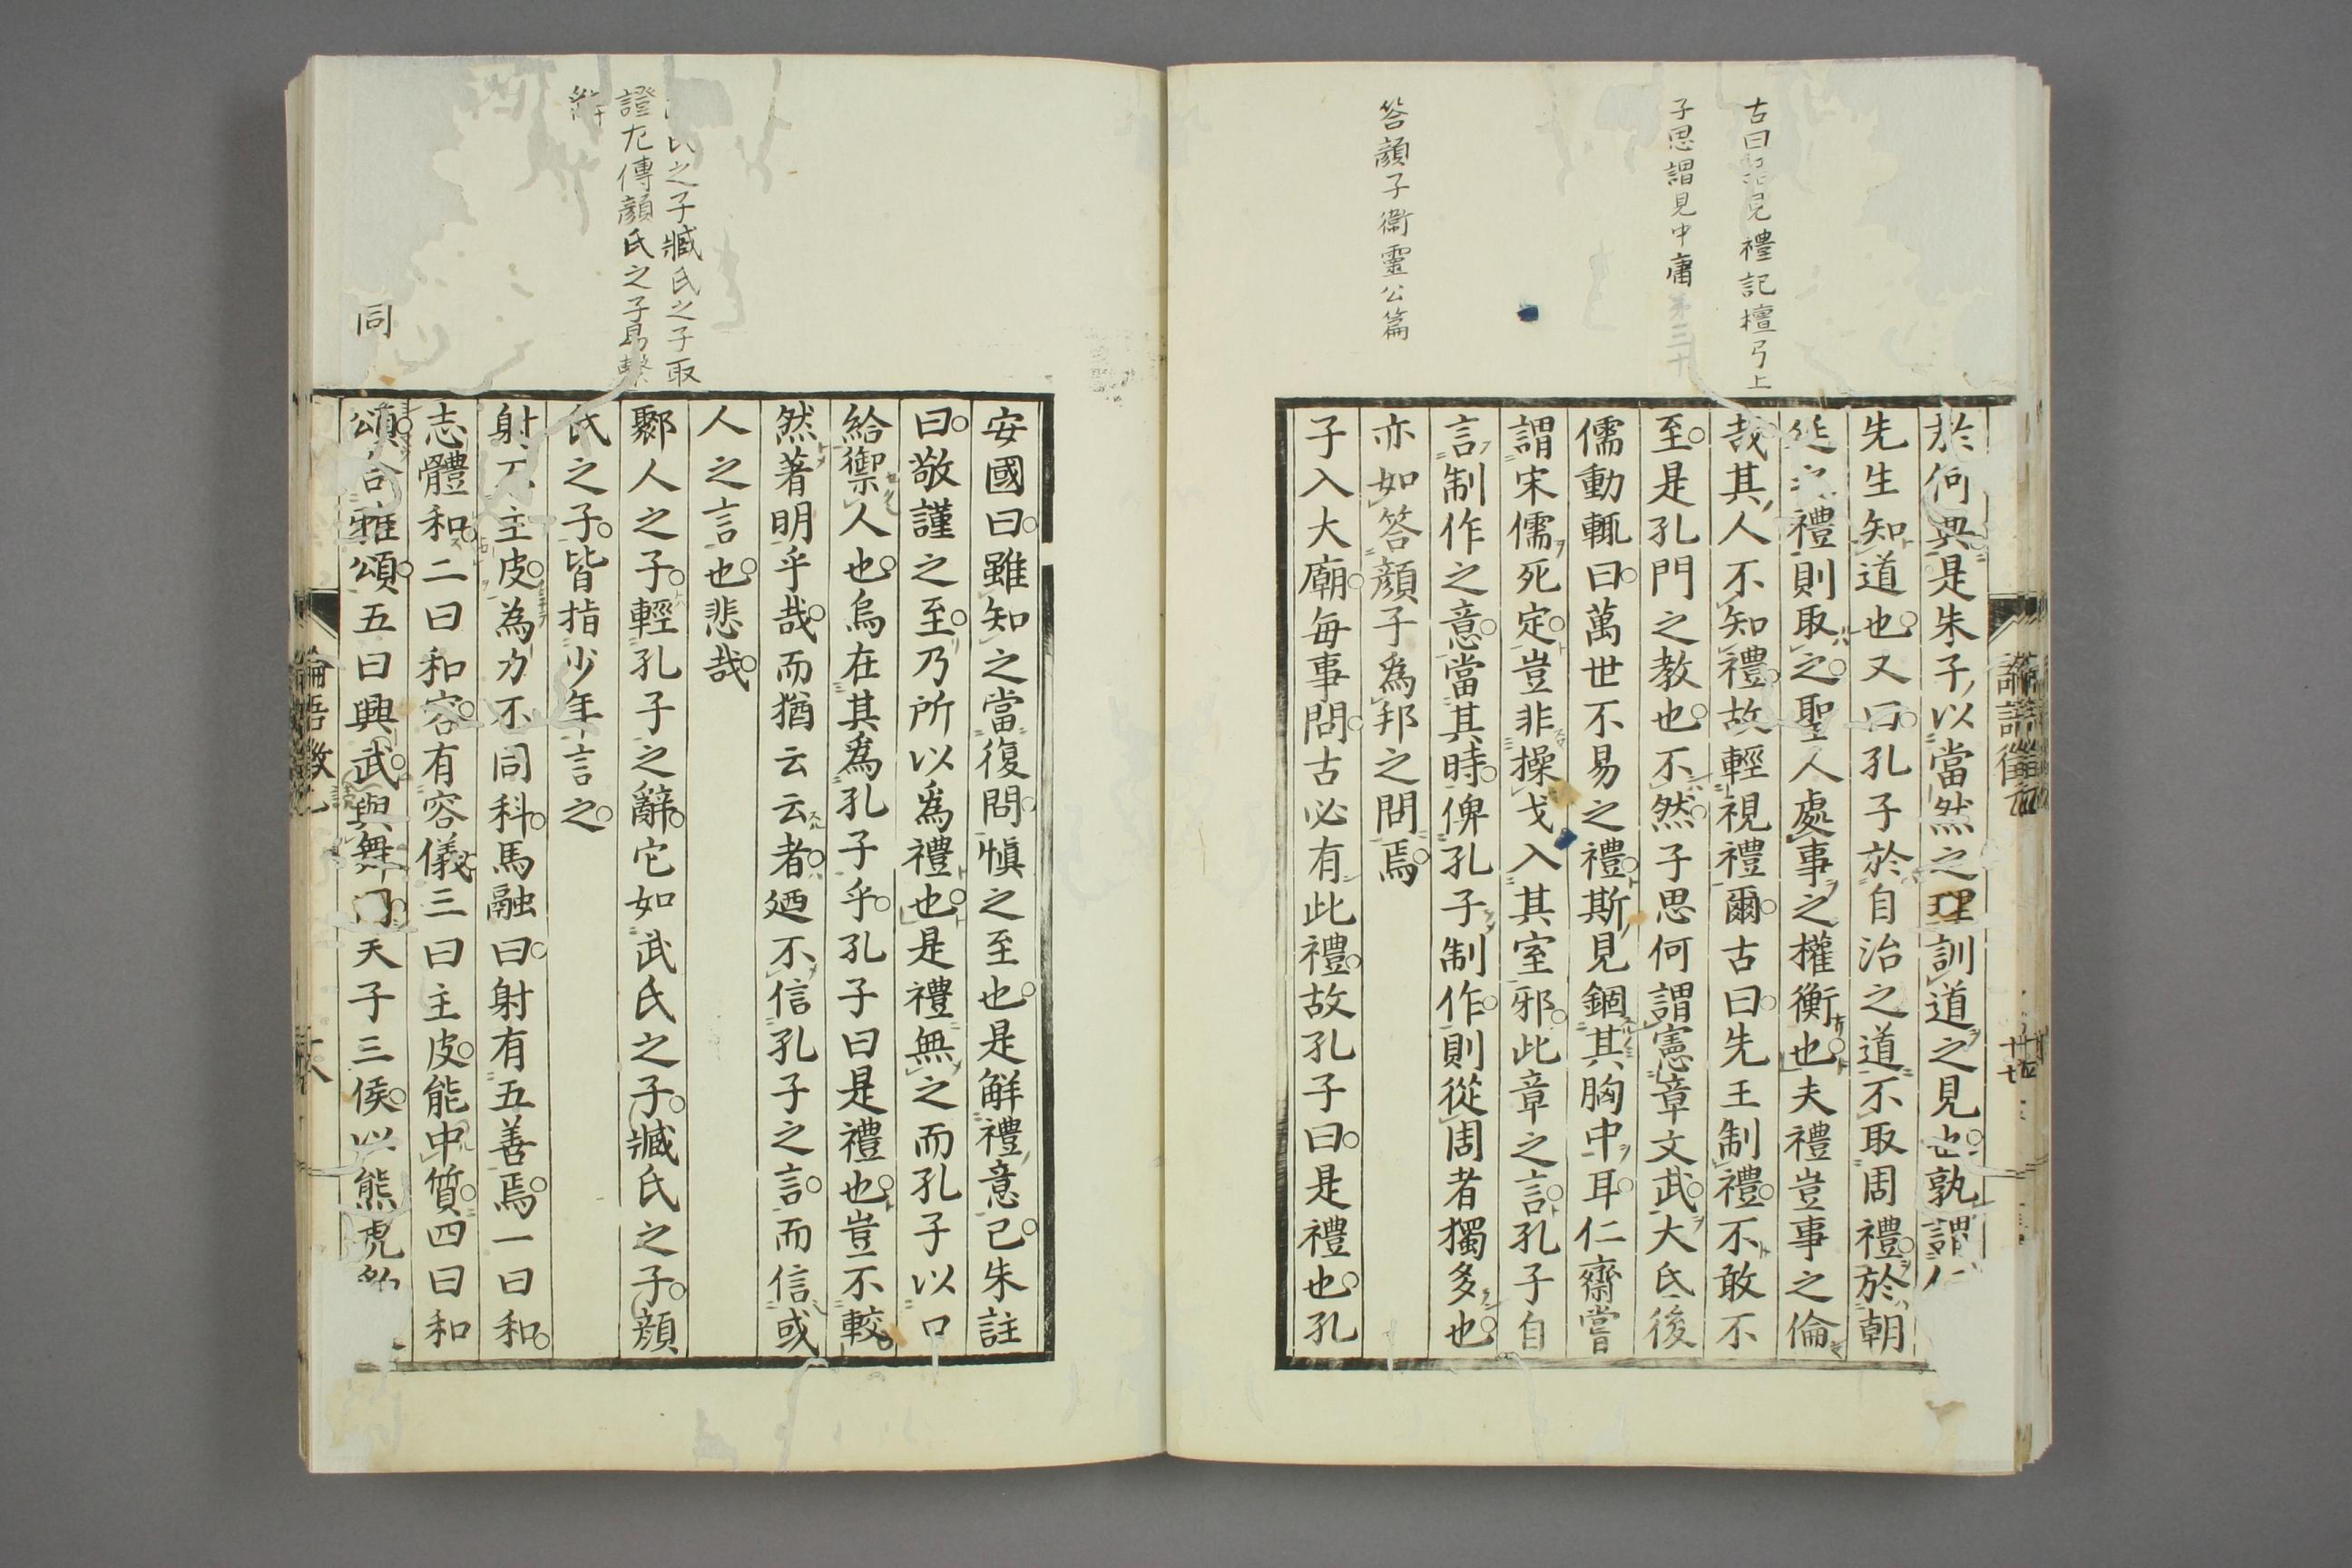 古曰 見禮記檀弓上
子思謂見中庸第三十
答顔子衞靈公篇
於何異是朱子以當然之理訓道之見也孰謂
先生知道也又曰孔子於自治之道不取周禮於朝
廷之禮則取之聖人處事之權衡也夫禮豈事之倫
哉其人不知禮故輕視禮爾古曰先王制禮不敢不
至是孔門之教也不然子思何謂憲章文武大氐後
儒動輒曰萬世不易之禮斯見錮其胸中耳仁齋嘗
謂宋儒死定豈非操戈入其室邪此章之言孔子自
言制作之意當其時俾孔子制作則從周者獨多也
亦如答顔子爲邦之問焉
子入大廟每事問古必有此禮故孔子曰是禮也孔
論語徵
氏之子臧氏之子取
證左傳顔氏之子易繫
辭
同
安國曰雖知之當復問愼之至也是解禮意已朱註
曰敬謹之至乃所以爲禮也是禮無之而孔子以口
給禦人也烏在其爲孔子乎孔子曰是禮也豈不較
然著明乎哉而猶云云者廼不信孔子之言而信或
人之言也悲哉
鄹人之子輕孔子之辭它如武氏之子臧氏之子顔
氏之子皆指少年言之
射不主皮為力不同科馬融曰射有五善焉一曰和
志體和二曰和容有容儀三曰主皮能中質四曰和
頌合雅頌五曰興武與舞同天子三侯以熊虎豹